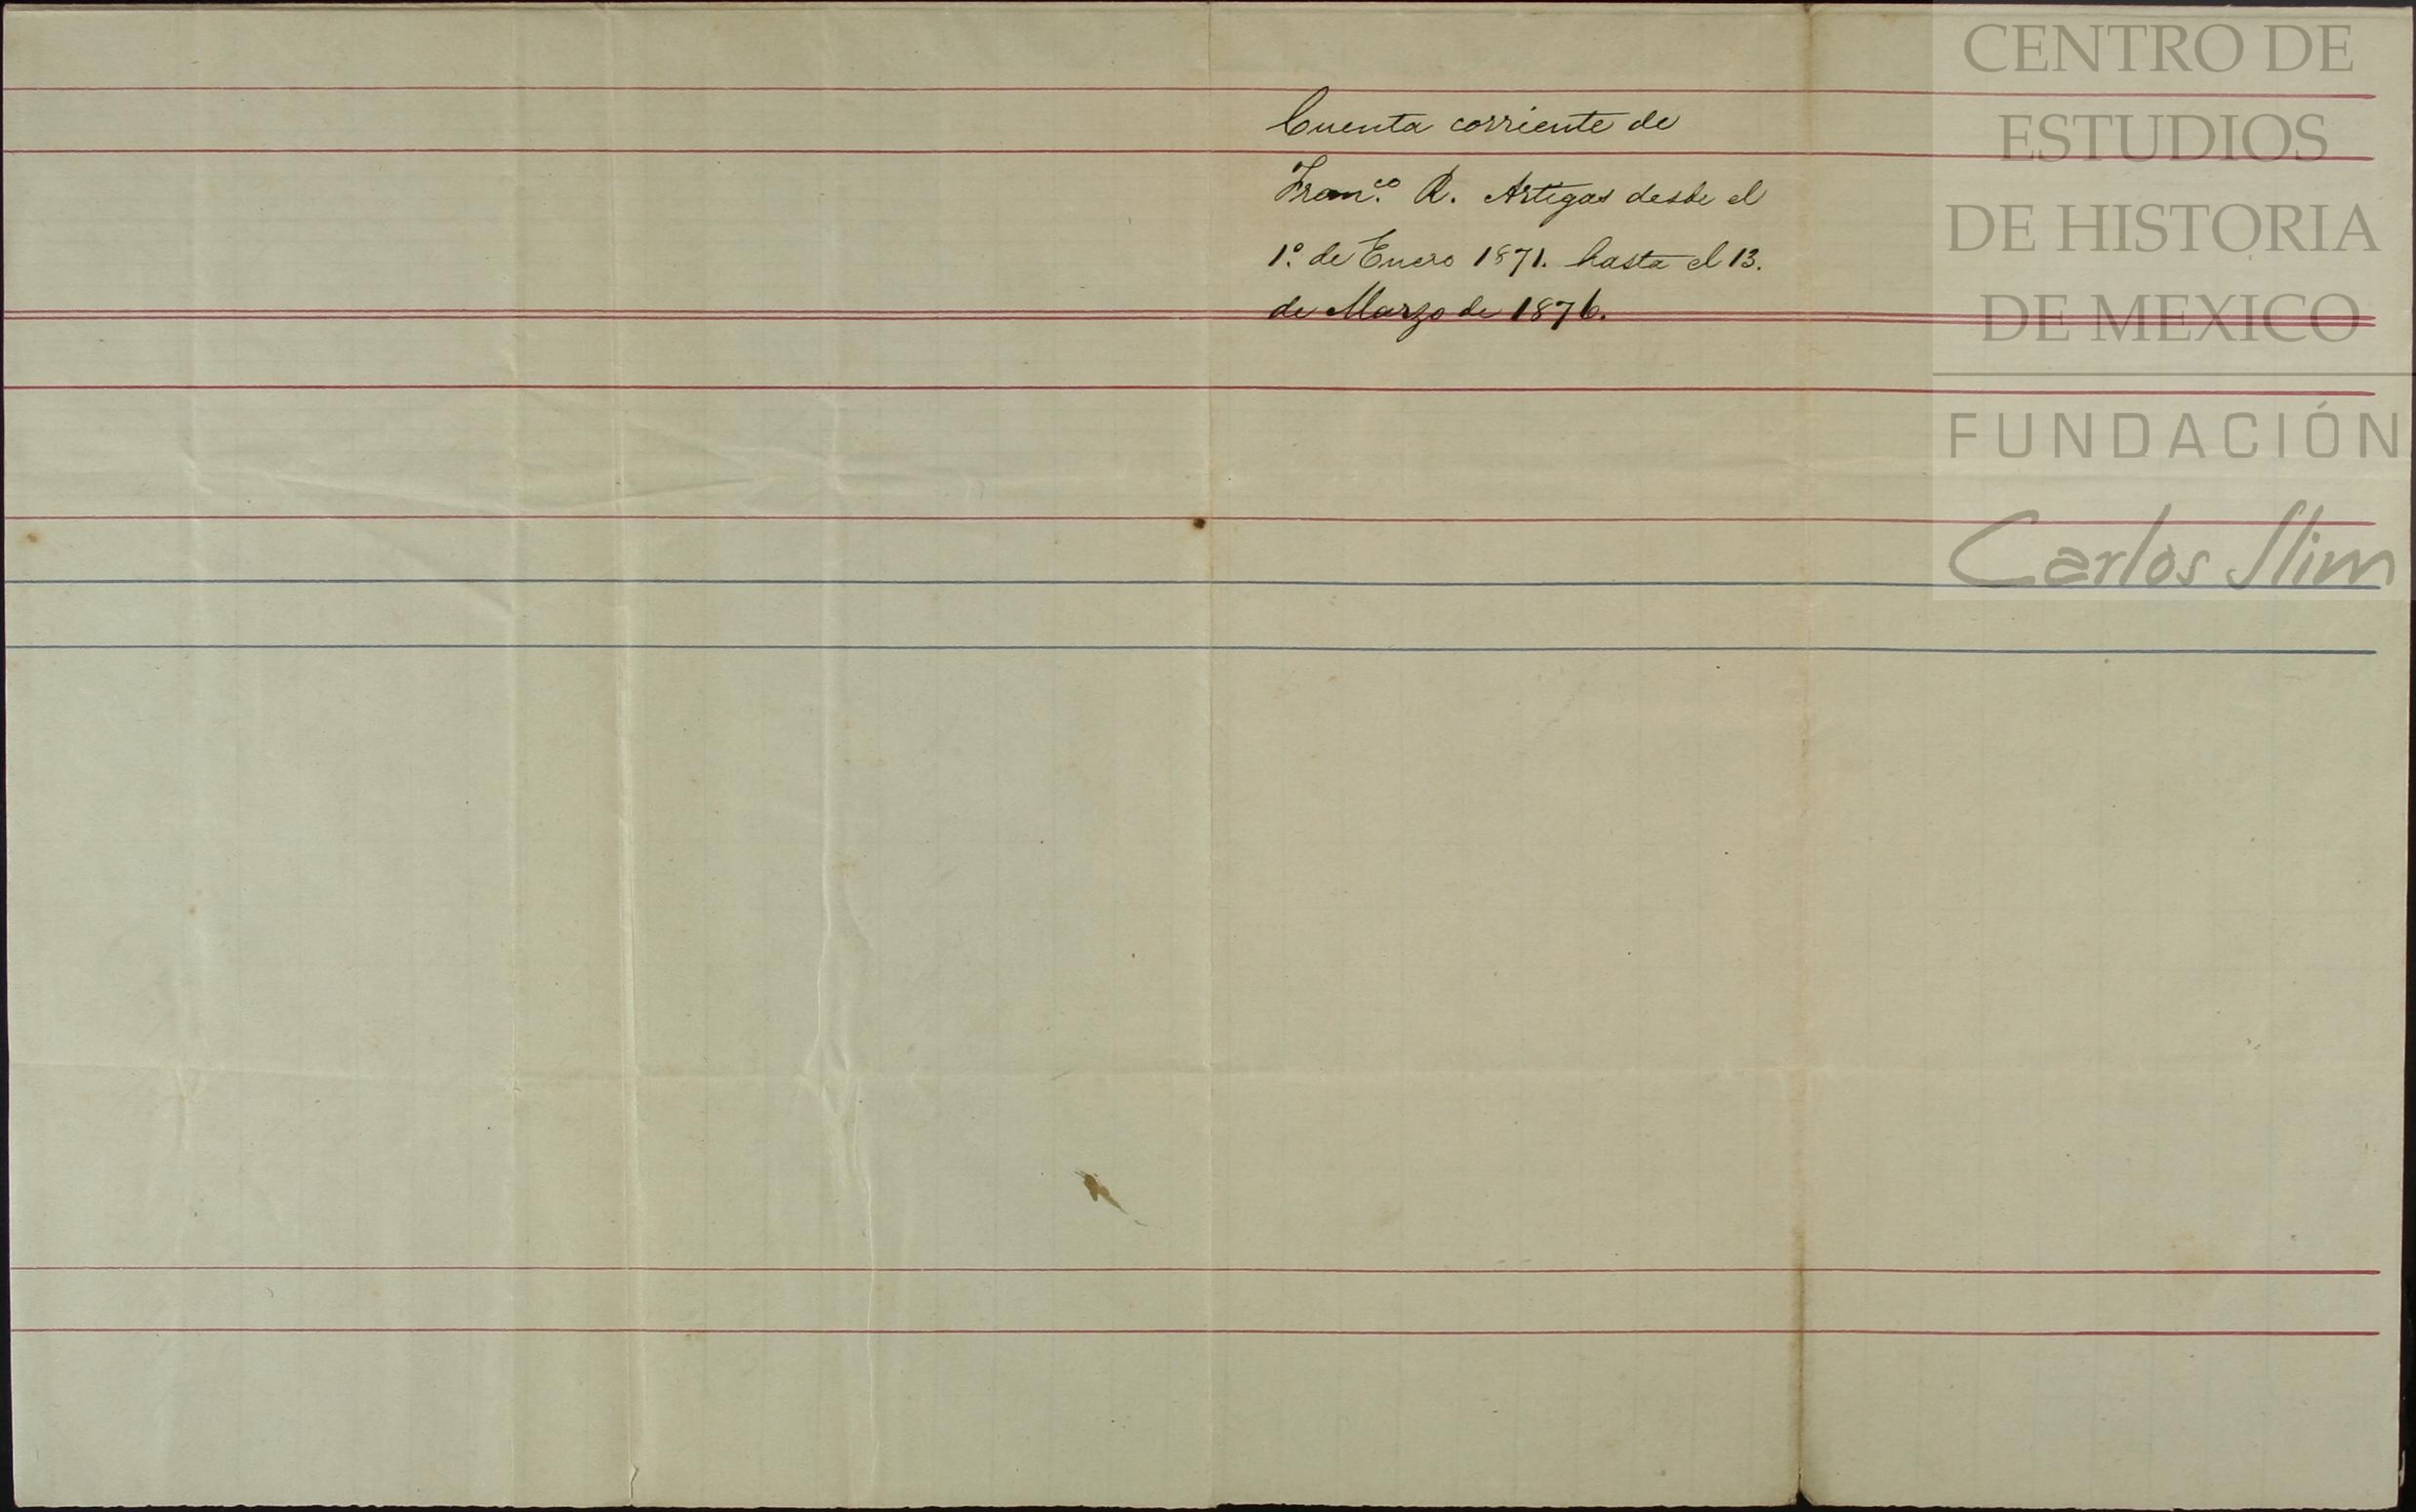 Cuenta corriente de
Fran.co R. Artigas desde el
1º de Enero 1871. hasta el 13.
de Marzo de 1876.
CENTRO DE
ESTUDIOS
DE HISTORIA
DE MEXICO
FUNDACIÓN
Carlos Slim